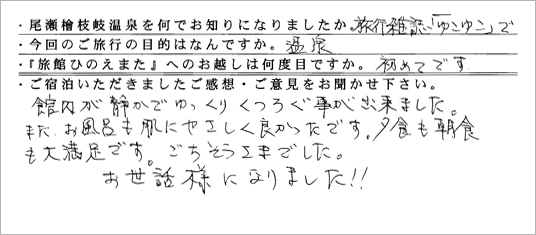 ・尾瀬檜枝岐温泉を何でお知りになりましたか。旅行雑誌「ゆこゆこ」で
・今回のご旅行の目的はなんですか。温泉
・『旅館ひのえまた』へのお越しは何度目ですか。初めてです
・ご宿泊いただきましたご感想・ご意見をお聞かせ下さい。
館内が静かでゆっくりくつろぐ事が出来ました。
また、お風呂も肌にやさしく良かったです。夕食も朝食
も大満足です。ごちそうさまでした。
お世話様になりました!!